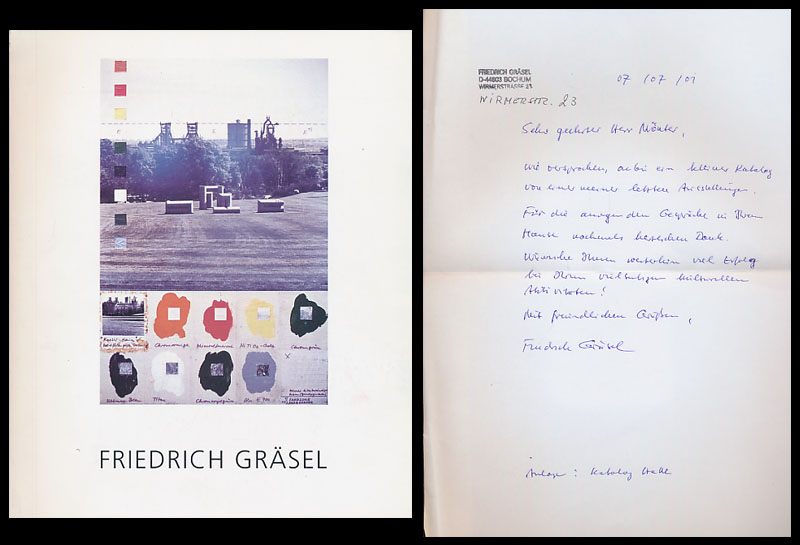 Chromorange
Titan
FRIEDRICH GRÄSEL
FRIEDRICH GRÄSEL
D-44803 BOCHUM
WIRMERSTRASSE 23
WIRMERSTR. 23
07 / 07 / 01
Sehr geehrter Herr
wie versprochen, anbei ein kleiner Katalog
von einer meiner letzten Ausstellungen.
Für die anregenden Gespräche in Ihrem
Hause nochmals herzlichen Dank.
Wünsche Ihnen weiterhin viel Erfolg
bei Ihren vielseitigen kulturellen
Aktivitäten!
Mit freundlichen Grüßen,
Friedrich Gräsel
Anlage: Katalog